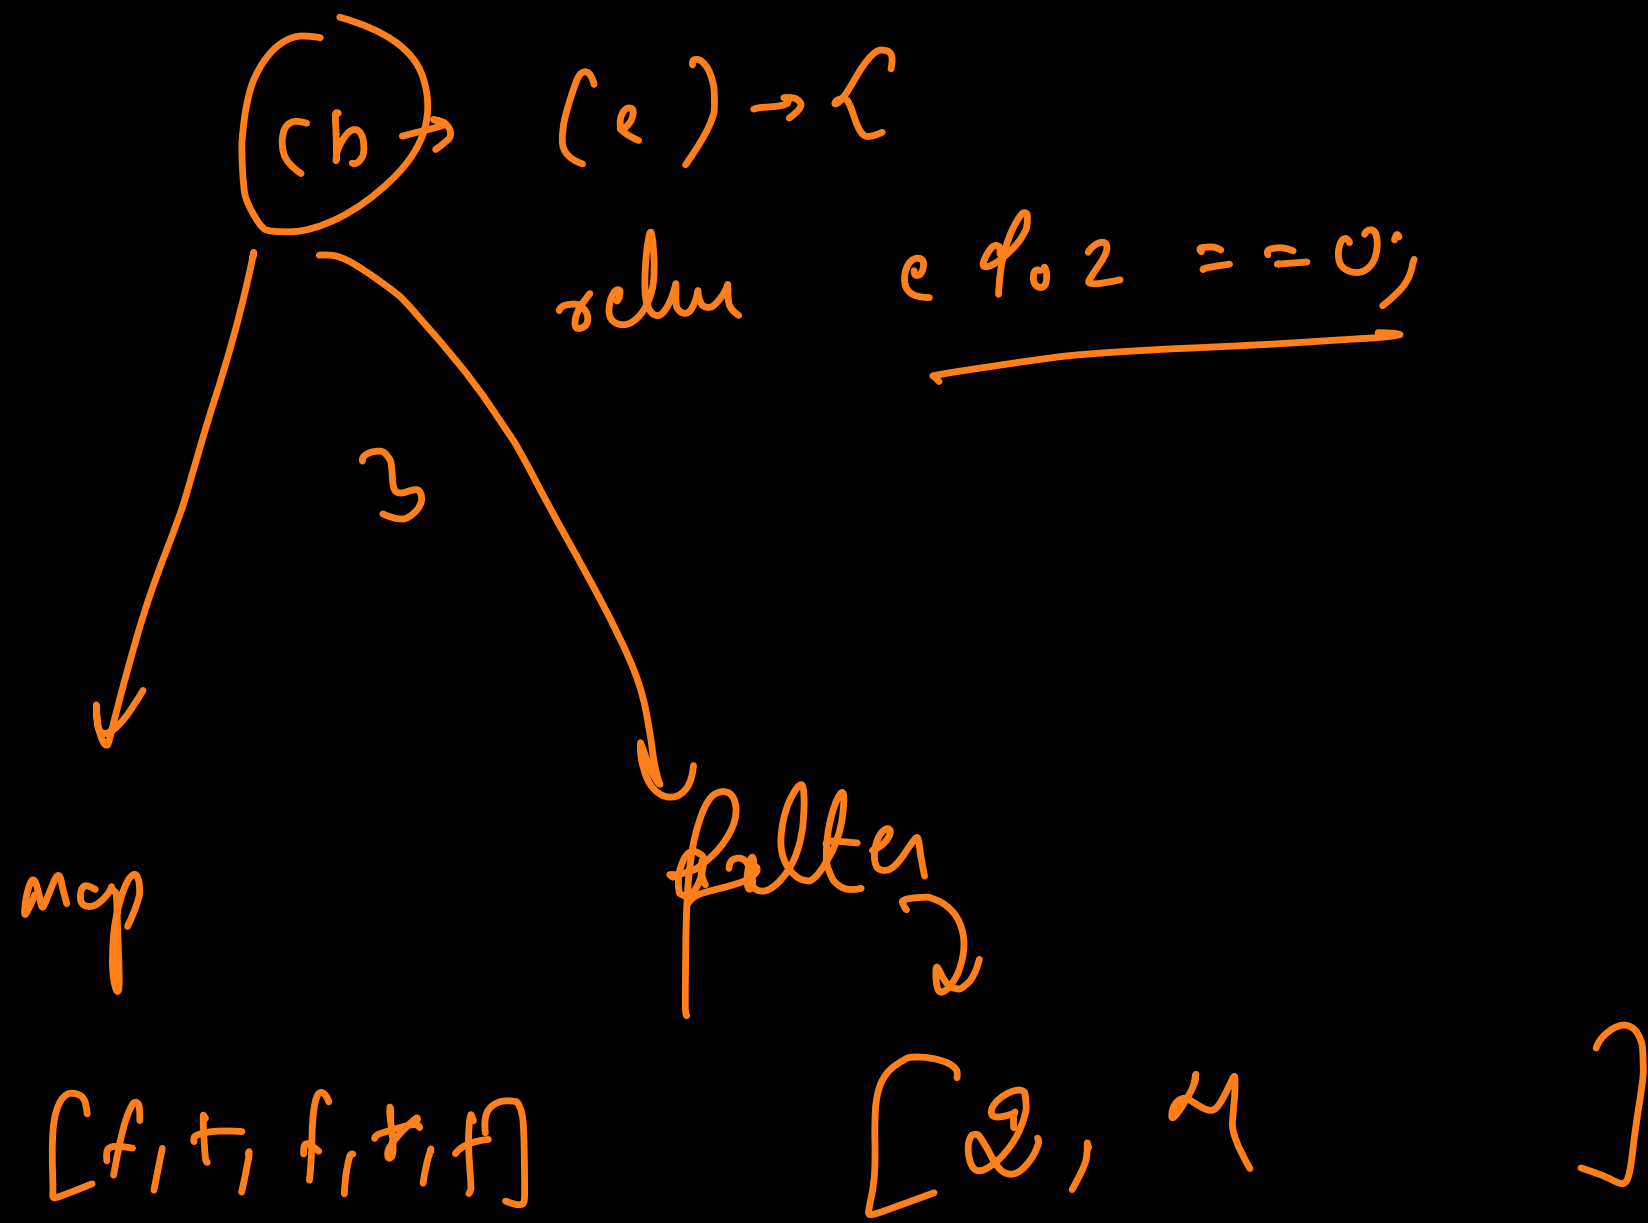 cb → (e) → {
return e % 2 == 0;
}
map filter
[f, t, f, t, f] [2, 4 ]